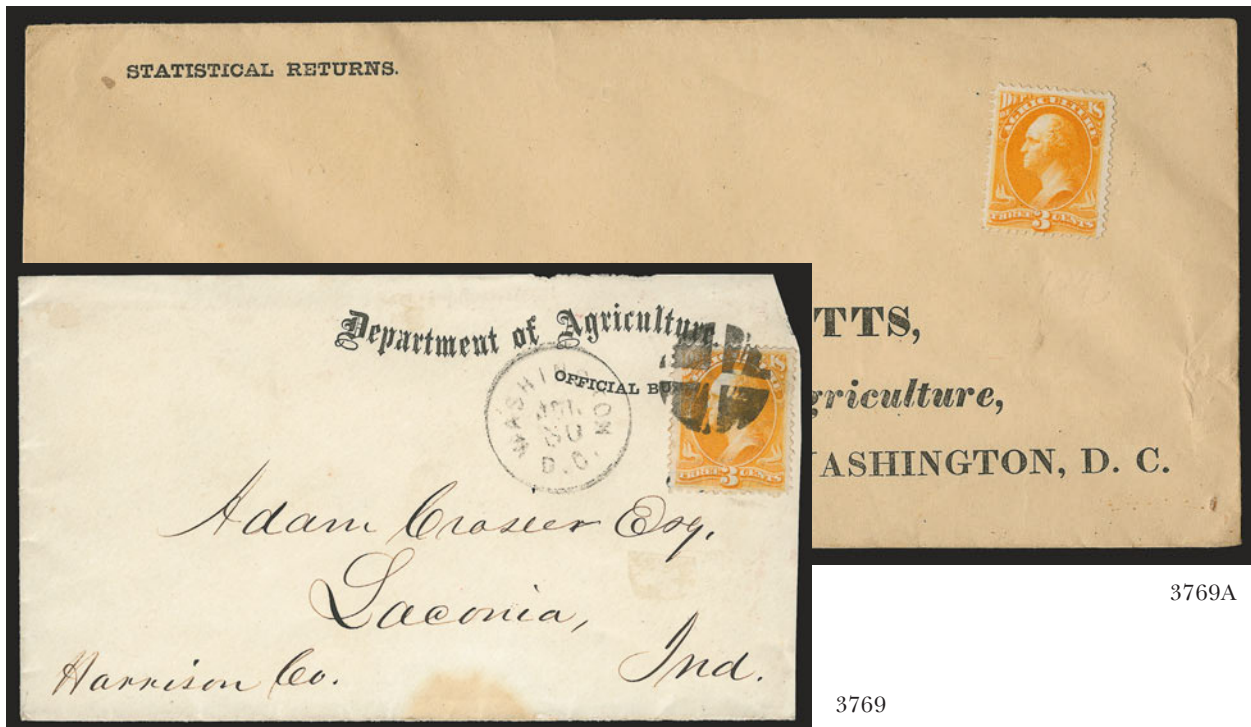 STATISTICAL RETURNS.
DEPT. OF AGRICULTURE U.S.
THREE 3 CENTS
TTS,
griculture,
ASHINGTON, D. C.
Department of Agriculture.
OFFICIAL BU
WASHINGTON
JUL
30
D.C.
THREE 3 CENTS
Adam Crosier Esq.
Laconia,
Harrison Co. Ind.
3769A
3769